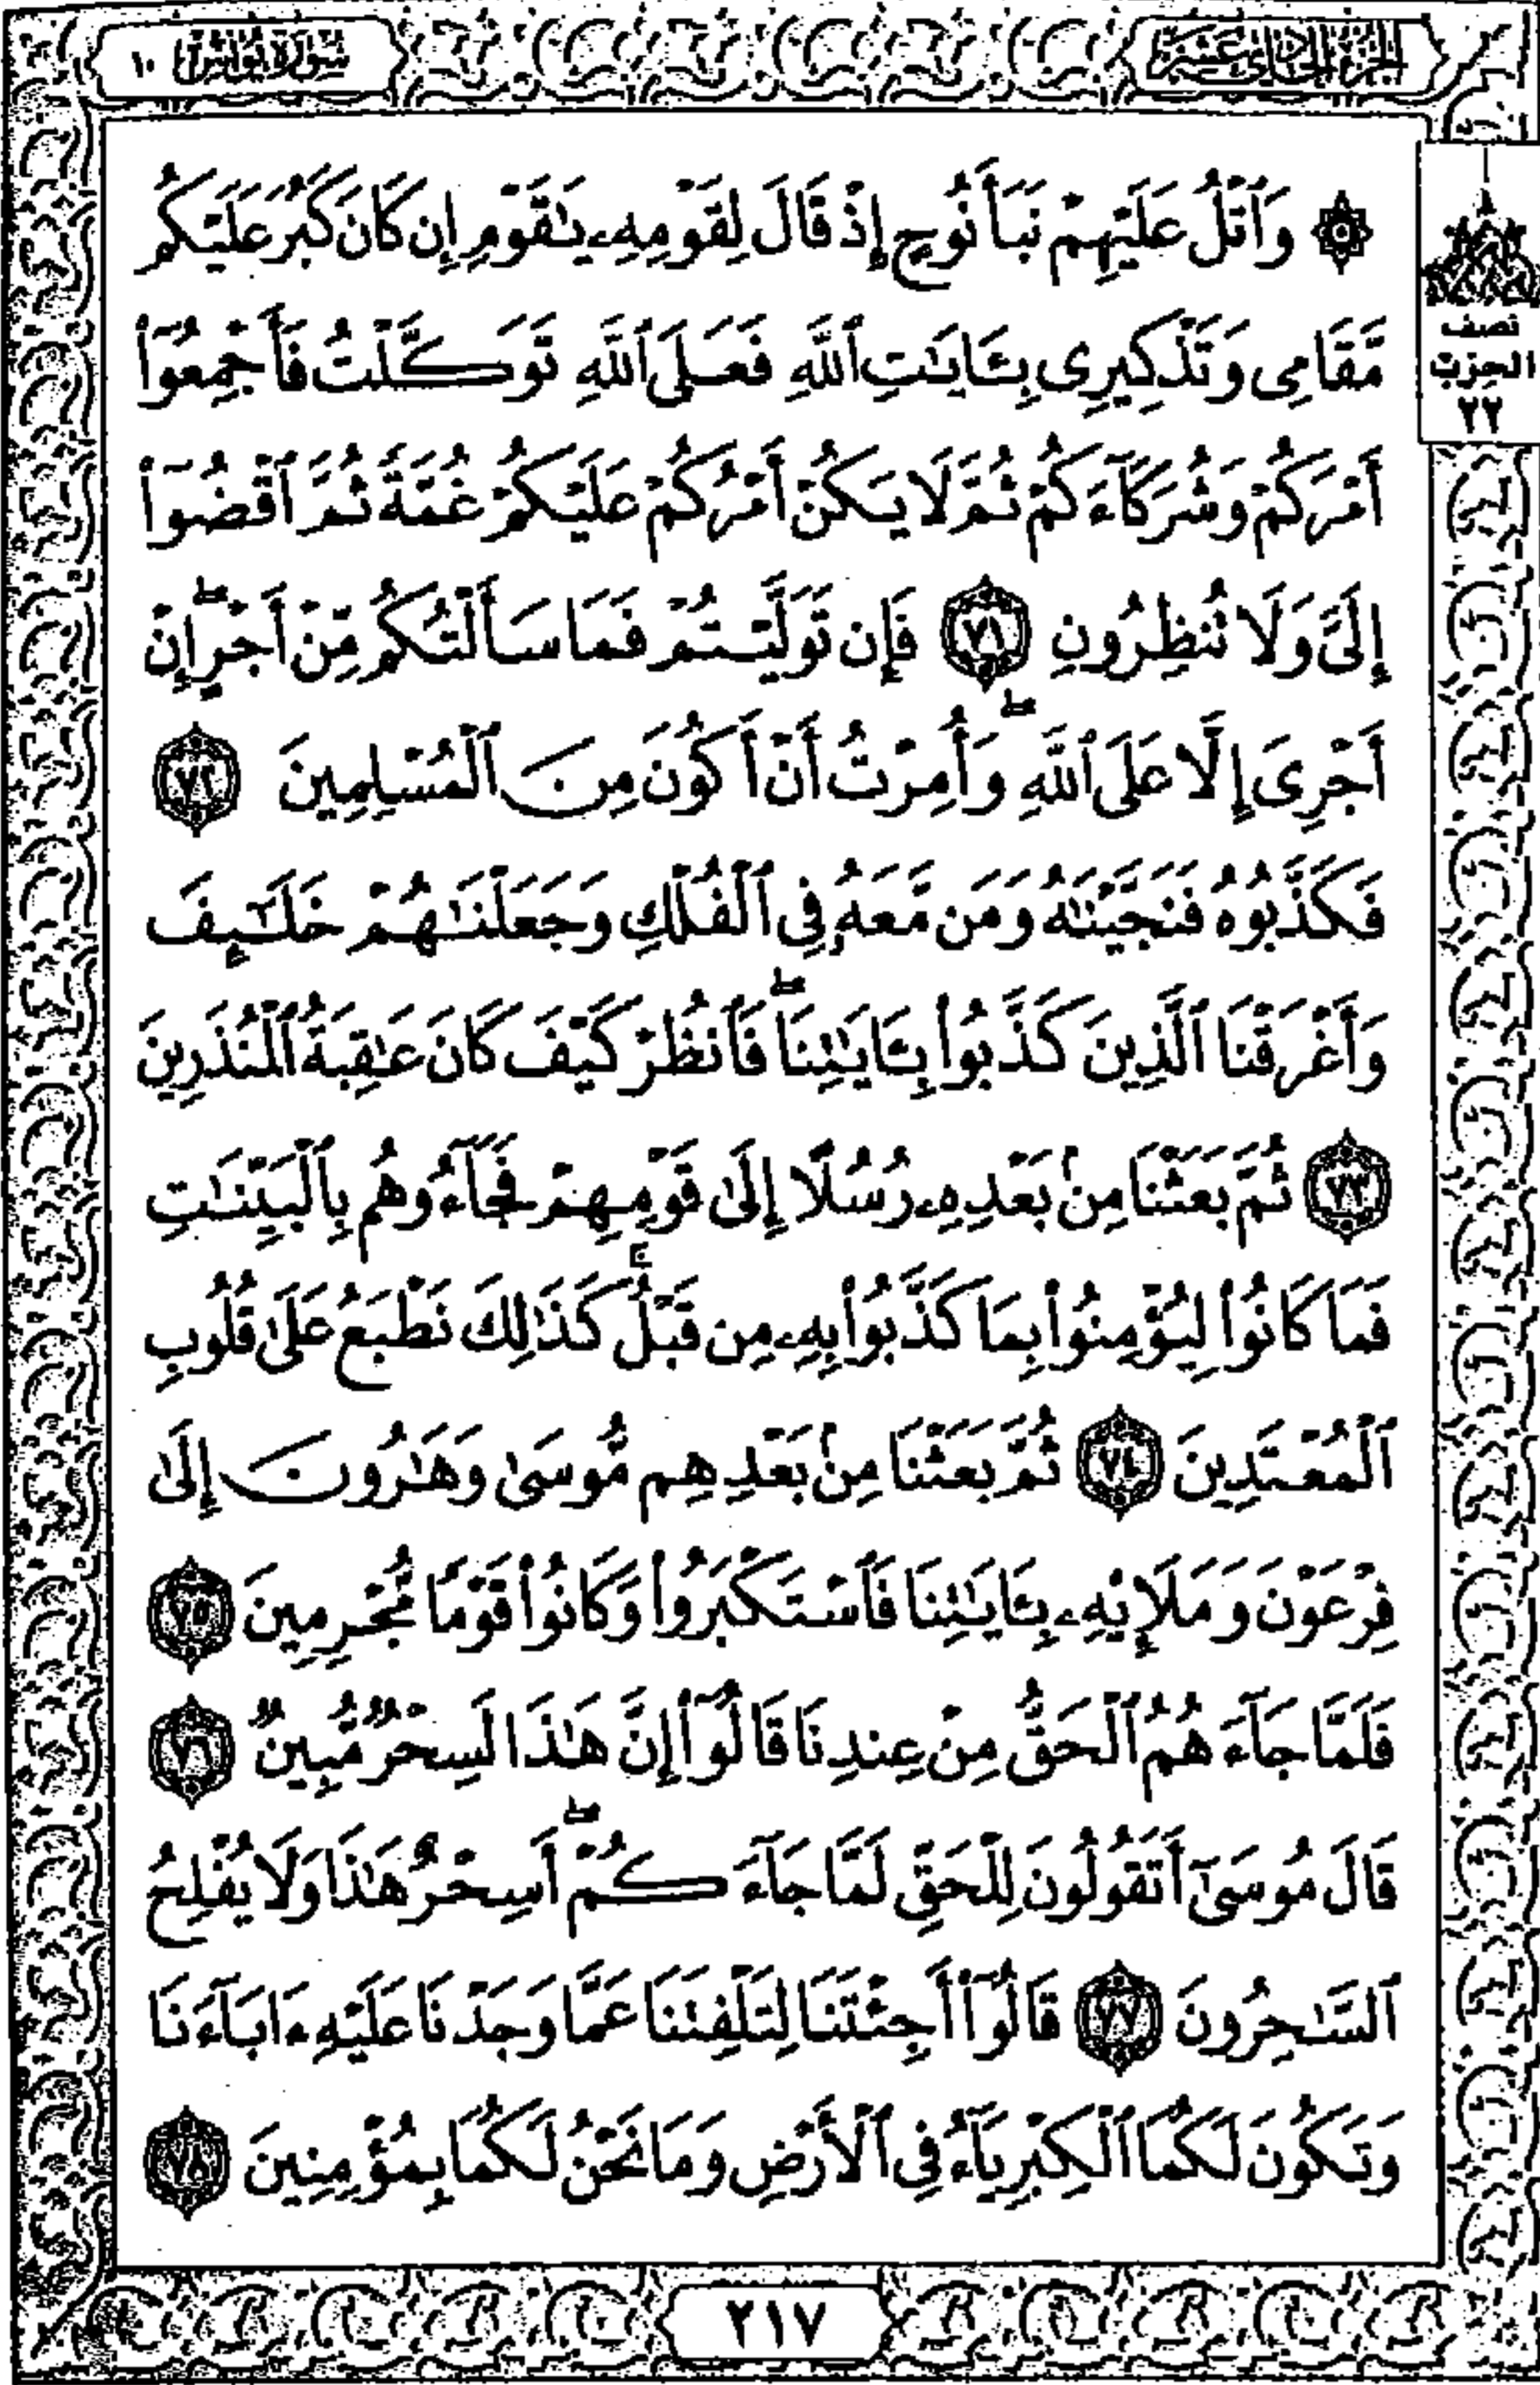 الجزء الحادي عشر
سورة يونس ١٠
۞ وَٱتْلُ عَلَيْهِمْ نَبَأَ نُوحٍ إِذْ قَالَ لِقَوْمِهِۦ يَٰقَوْمِ إِن كَانَ كَبُرَ عَلَيْكُم
مَّقَامِى وَتَذْكِيرِى بِـَٔايَٰتِ ٱللَّهِ فَعَلَى ٱللَّهِ تَوَكَّلْتُ فَأَجْمِعُوٓا۟
أَمْرَكُمْ وَشُرَكَآءَكُمْ ثُمَّ لَا يَكُنْ أَمْرُكُمْ عَلَيْكُمْ غُمَّةً ثُمَّ ٱقْضُوٓا۟
إِلَىَّ وَلَا تُنظِرُونِ ٧١ فَإِن تَوَلَّيْتُمْ فَمَا سَأَلْتُكُم مِّنْ أَجْرٍ ۖ إِنْ
أَجْرِىَ إِلَّا عَلَى ٱللَّهِ ۖ وَأُمِرْتُ أَنْ أَكُونَ مِنَ ٱلْمُسْلِمِينَ ٧٢
فَكَذَّبُوهُ فَنَجَّيْنَٰهُ وَمَن مَّعَهُۥ فِى ٱلْفُلْكِ وَجَعَلْنَٰهُمْ خَلَٰٓئِفَ
وَأَغْرَقْنَا ٱلَّذِينَ كَذَّبُوا۟ بِـَٔايَٰتِنَا ۖ فَٱنظُرْ كَيْفَ كَانَ عَٰقِبَةُ ٱلْمُنذَرِينَ
٧٣ ثُمَّ بَعَثْنَا مِنۢ بَعْدِهِۦ رُسُلًا إِلَىٰ قَوْمِهِمْ فَجَآءُوهُم بِٱلْبَيِّنَٰتِ
فَمَا كَانُوا۟ لِيُؤْمِنُوا۟ بِمَا كَذَّبُوا۟ بِهِۦ مِن قَبْلُ ۚ كَذَٰلِكَ نَطْبَعُ عَلَىٰ قُلُوبِ
ٱلْمُعْتَدِينَ ٧٤ ثُمَّ بَعَثْنَا مِنۢ بَعْدِهِم مُّوسَىٰ وَهَٰرُونَ إِلَىٰ
فِرْعَوْنَ وَمَلَإِي۟هِۦ بِـَٔايَٰتِنَا فَٱسْتَكْبَرُوا۟ وَكَانُوا۟ قَوْمًا مُّجْرِمِينَ ٧٥
فَلَمَّا جَآءَهُمُ ٱلْحَقُّ مِنْ عِندِنَا قَالُوٓا۟ إِنَّ هَٰذَا لَسِحْرٌ مُّبِينٌ ٧٦
قَالَ مُوسَىٰٓ أَتَقُولُونَ لِلْحَقِّ لَمَّا جَآءَكُمْ ۖ أَسِحْرٌ هَٰذَا وَلَا يُفْلِحُ
ٱلسَّٰحِرُونَ ٧٧ قَالُوٓا۟ أَجِئْتَنَا لِتَلْفِتَنَا عَمَّا وَجَدْنَا عَلَيْهِ ءَابَآءَنَا
وَتَكُونَ لَكُمَا ٱلْكِبْرِيَآءُ فِى ٱلْأَرْضِ وَمَا نَحْنُ لَكُمَا بِمُؤْمِنِينَ ٧٨
نصف
الحزب
٢٢
٢١٧